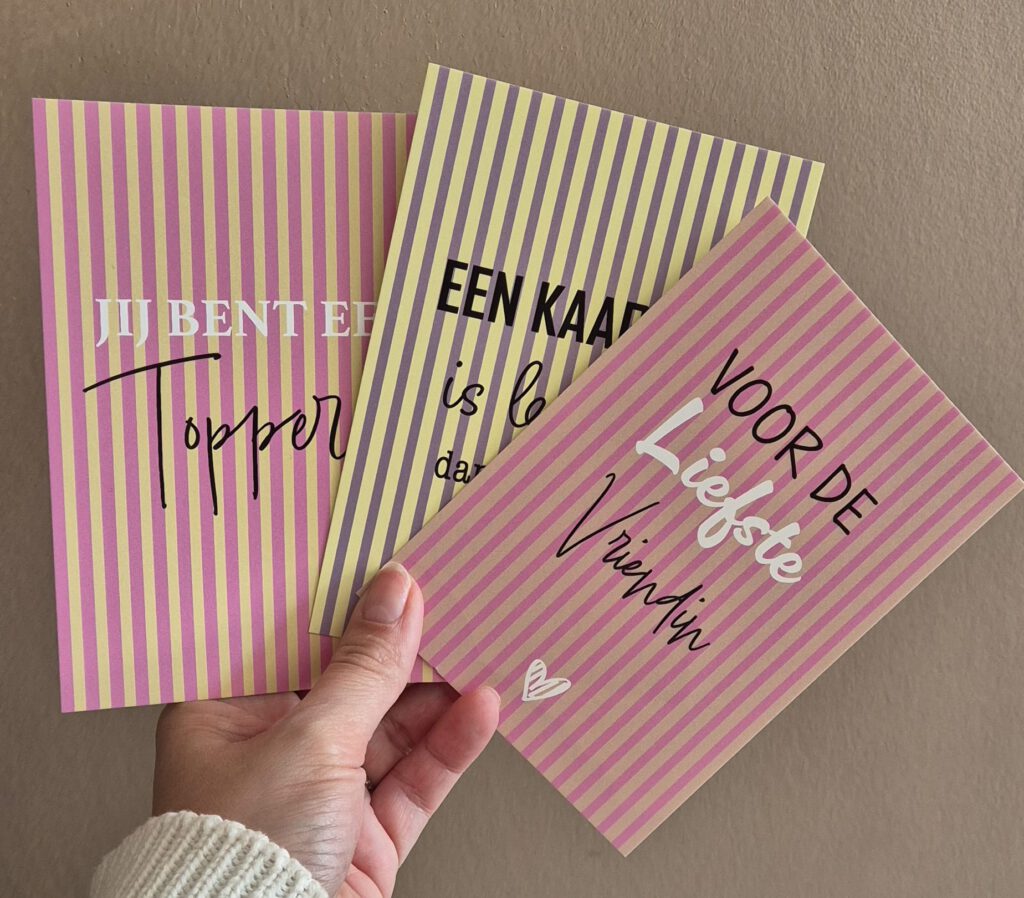 JIJ BENT
Topper
EEN
is
VOOR DE
Liefste
Vriendin